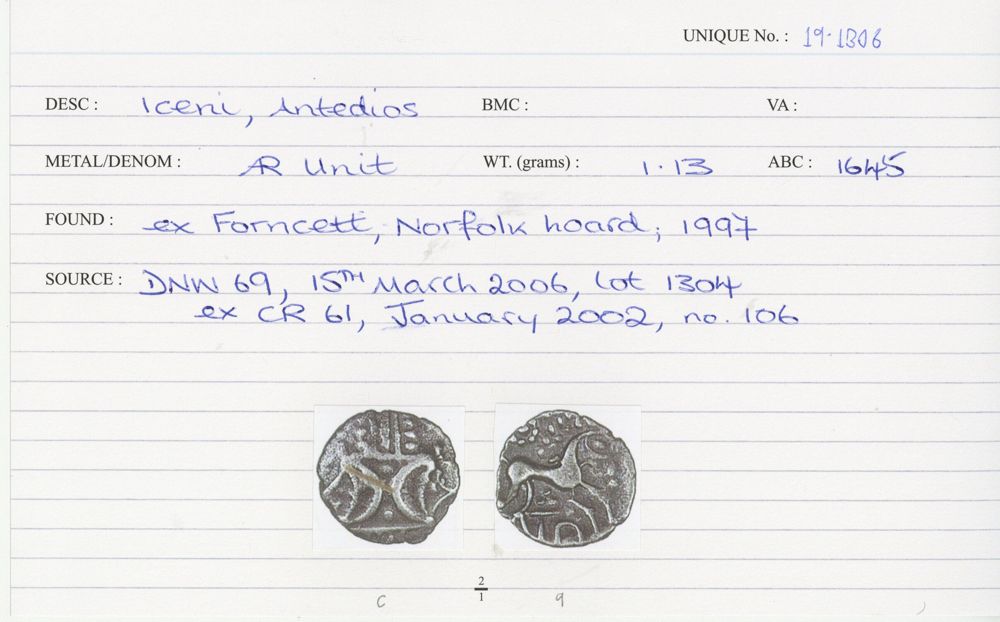 UNIQUE No. : 19·1306
DESC : Iceni, Antedios BMC : VA :
METAL/DENOM : AR Unit WT. (grams) : 1·13 ABC : 1645
FOUND : ex Forncett, Norfolk hoard, 1997
SOURCE : DNW 69, 15TH March 2006, lot 1304
ex CR 61, January 2002, no. 106
2
1
c 9